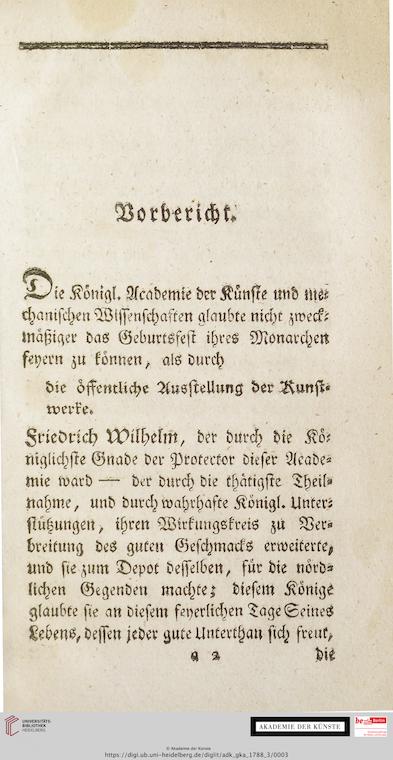 Vorbericht.
Die Königl. Academie der Künste und me-
chanischen Wissenschaften glaubte nicht zweck-
mäßiger das Geburtsfest ihres Monarchen
feyern zu können, als durch
die öffentliche Ausstellung der Kunst-
werke.
Friedrich Wilhelm, der durch die Kö-
niglichste Gnade der Protector dieser Acade-
mie ward — der durch die thätigste Theil-
nahme, und durch wahrhafte Königl. Unter-
stützungen, ihren Wirkungskreis zu Ver-
breitung des guten Geschmacks erweiterte,
und sie zum Depot desselben, für die nörd-
lichen Gegenden machte; diesem Könige
glaubte sie an diesem feyerlichen Tage Seines
Lebens, dessen jeder gute Unterthan sich freut,
a 2 die
UNIVERSITÄTS-
BIBLIOTHEK
HEIDELBERG
AKADEMIE DER KÜNSTE
be Berlin
© Akademie der Künste
https://digi.ub.uni-heidelberg.de/diglit/adk_gka_1788_3/0003